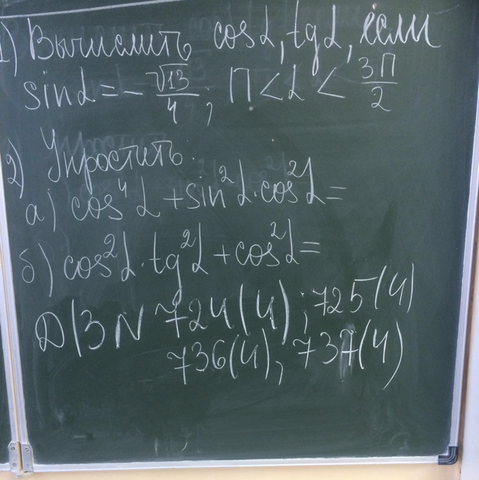 1) Вычислить cosα, tgα, если
sinα = - √13/4 ; П < α < 3П/2
2) Упростить:
а) cos⁴α + sin²α · cos²α =
б) cos²α · tg²α + cos²α =
Д/З N 724(4); 725(4)
736(4); 737(4)